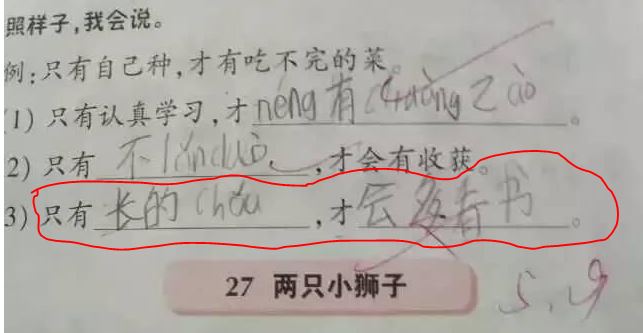 照样子,我会说。
例:只有自己种,才有吃不完的菜。
(1) 只有认真学习,才néng有chuàng zào。
2) 只有不lǎnduò,才会有收获。
3) 只有长的chǒu,才会多看书。
27 两只小狮子
5.9